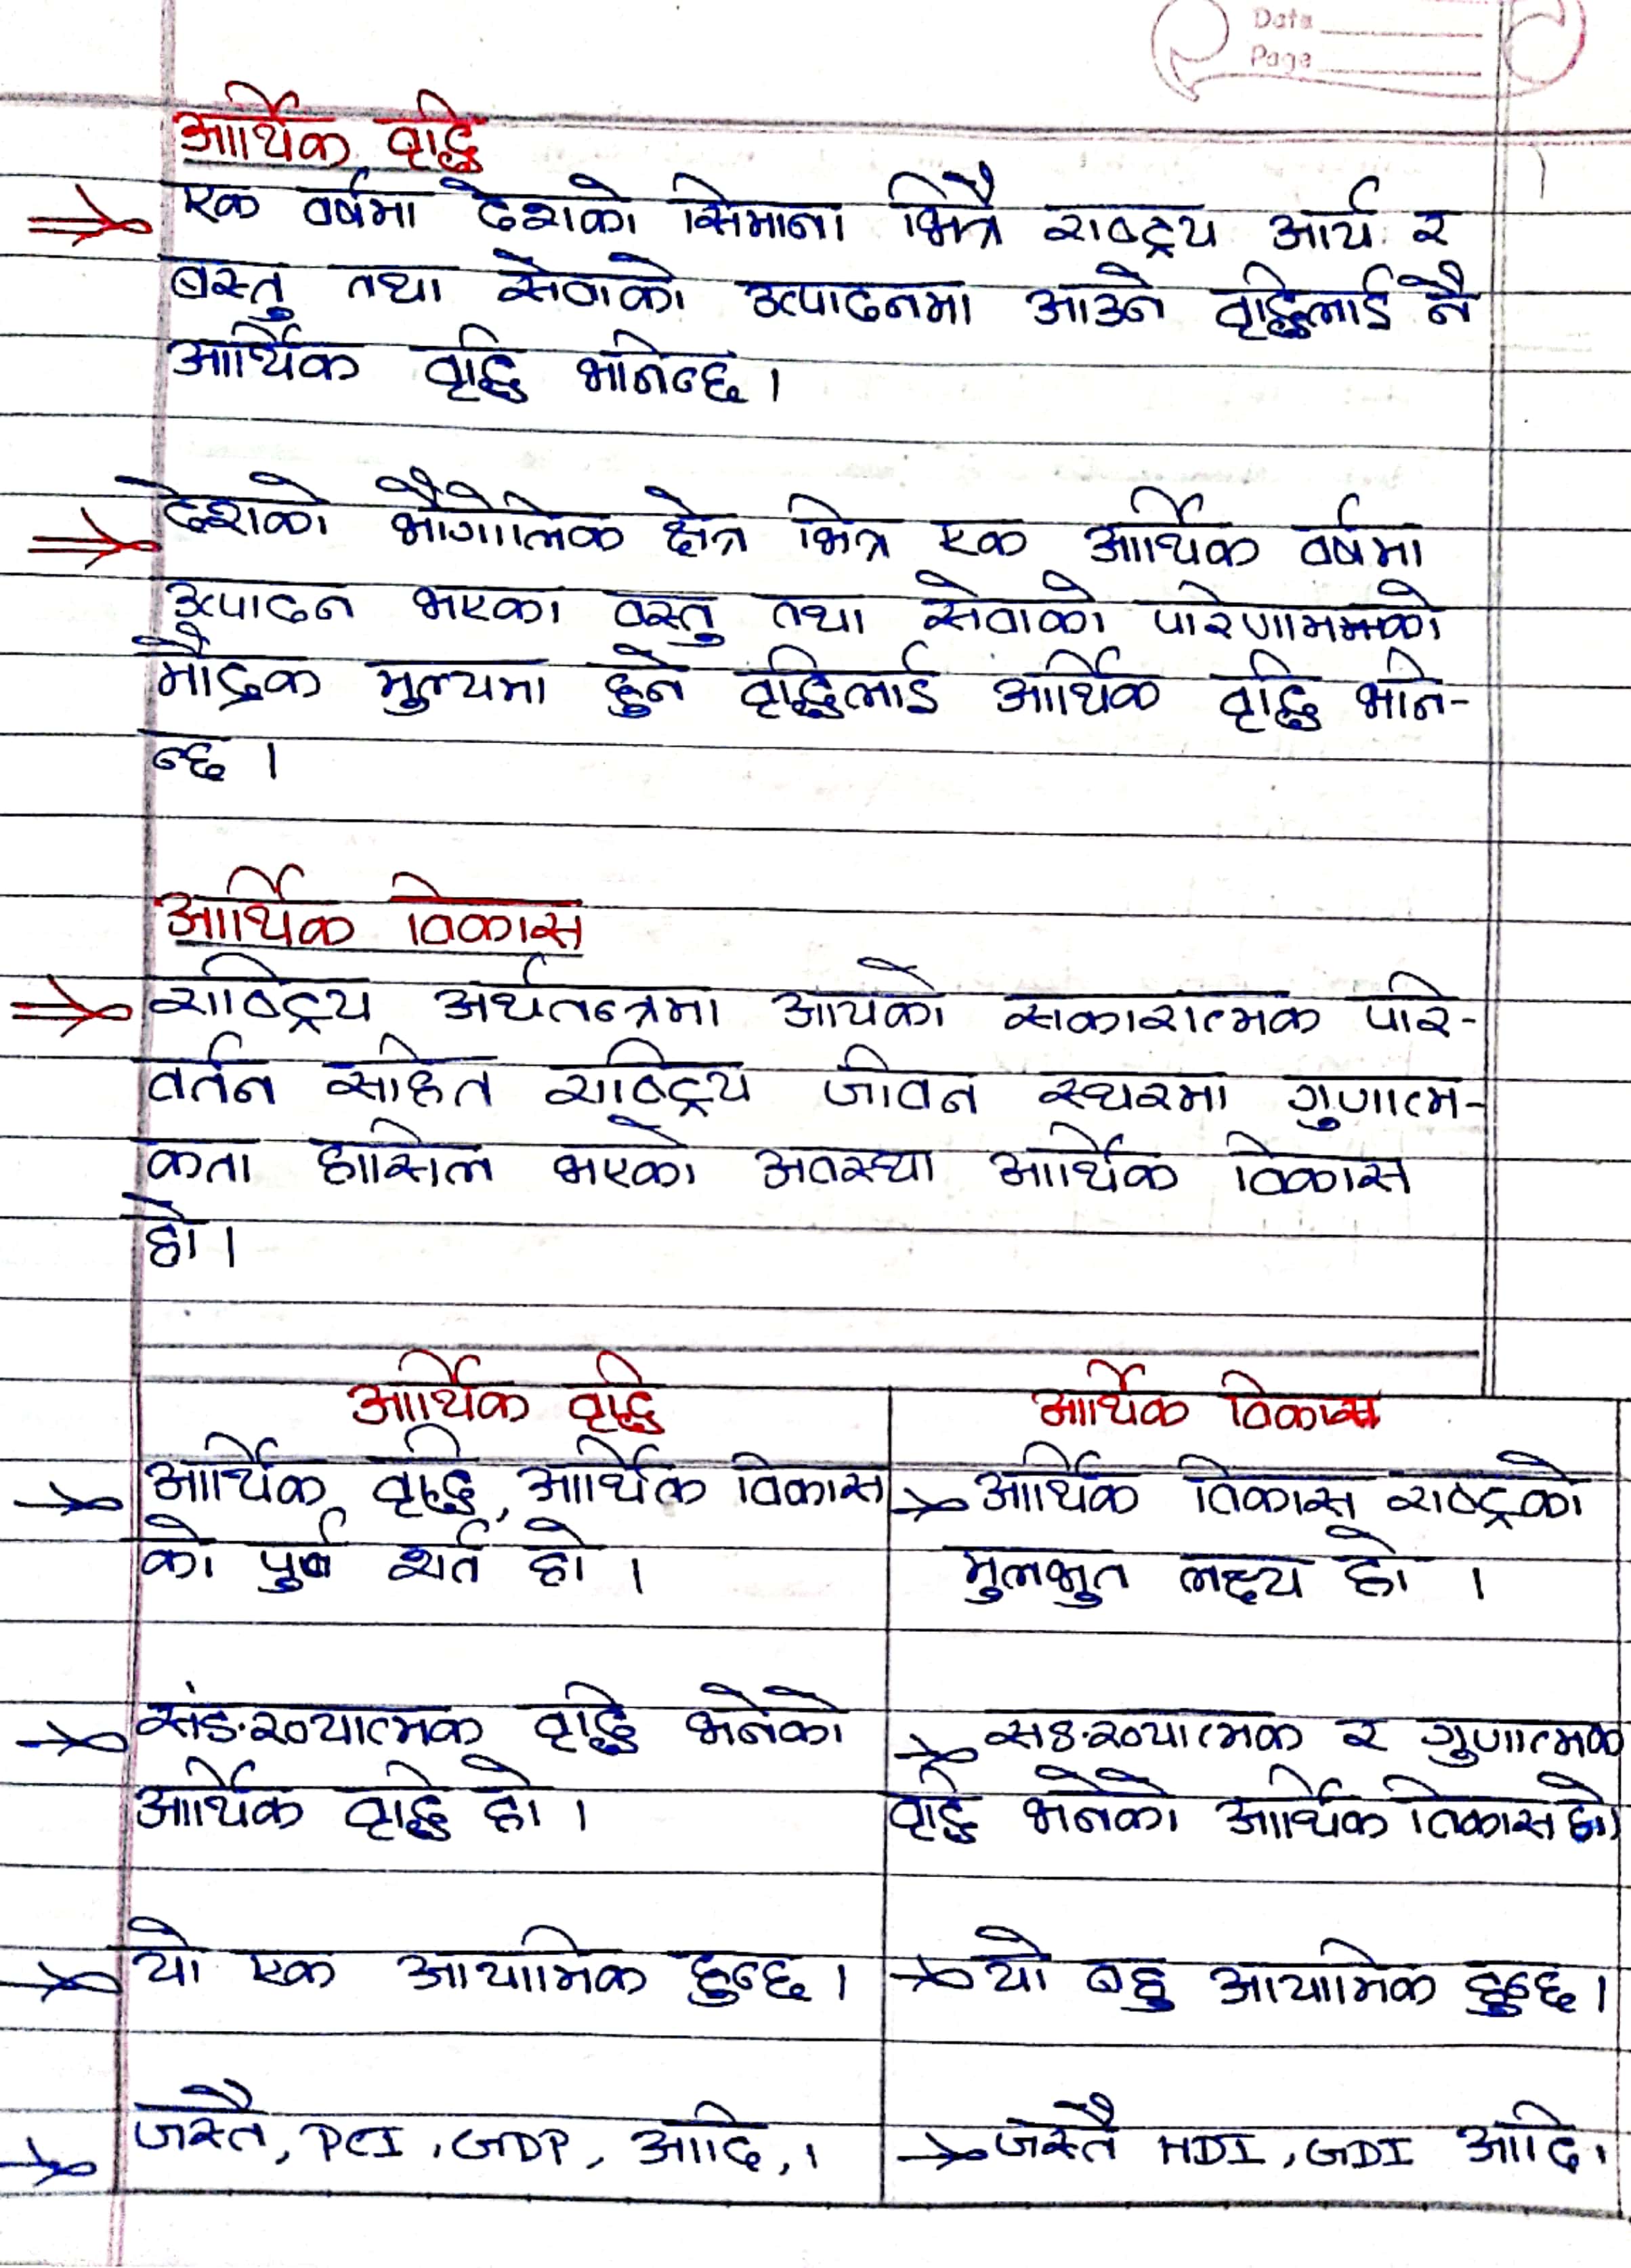 Date
Page
आर्थिक वृद्धि
एक वर्षमा देशको सिमाना भित्रै राष्ट्रय आर्य र
बस्तु तथा सेवाको उत्पादनमा आउने वृद्धिलाई नै
आर्थिक वृद्धि भनिन्छ ।
देशको भौगोलिक क्षेत्र भित्र एक आर्थिक वर्षमा
उत्पादन भएका वस्तु तथा सेवाको
मौद्रिक मुल्यमा हुने वृद्धिलाई आर्थिक वृद्धि भनि-
न्छ ।
आर्थिक विकास
राष्ट्रिय अर्थतन्त्रमा आयको सकारात्मक परि-
वर्तन सहित राष्ट्रिय जीवन स्थरमा गुणात्म-
कता हासिल भएको अवस्था आर्थिक विकास
हो ।
आर्थिक वृद्धि
आर्थिक विकास
आर्थिक वृद्धि, आर्थिक विकास
को पुर्व शर्त हो ।
आर्थिक विकास राष्ट्रको
मुलभुत लक्ष्य हो ।
संङ्ख्यात्मक वृद्धि भनेको
आर्थिक वृद्धि हो ।
सङ्ख्यात्मक र गुणात्मक
वृद्धि भनेको आर्थिक विकास हो
यो एक आयामिक हुन्छ ।
यो बहु आयामिक हुन्छ ।
जस्तै, PCI, GDP, आदि, ।
जस्तै HDI, GDI आदि ।